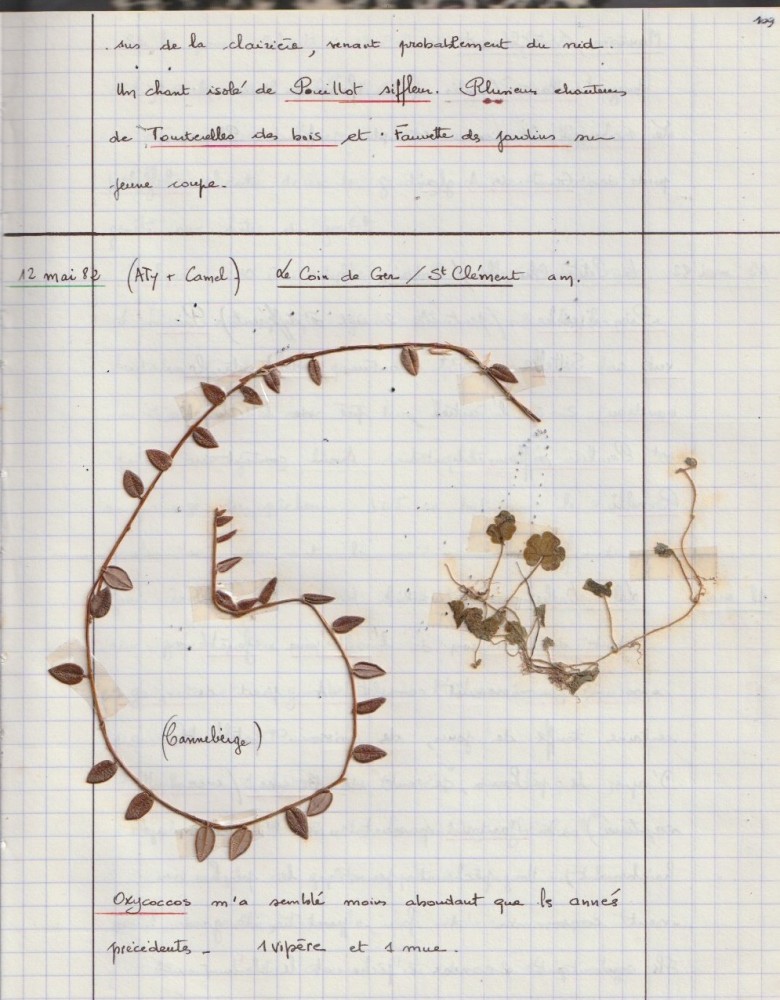 109
sus de la clairière, venant probablement du nid.
Un chant isolé de Pouillot siffleur. Plusieurs chanteurs
de Tourterelles des bois et Fauvette des jardins sur
jeune coupe.
12 mai 82 (ATy + Camel) Le Coin de Ger / St Clément am.
(Canneberge)
Oxycoccos m'a semblé moins abondant que ls annés
précédentes _ 1 vipère et 1 mue.